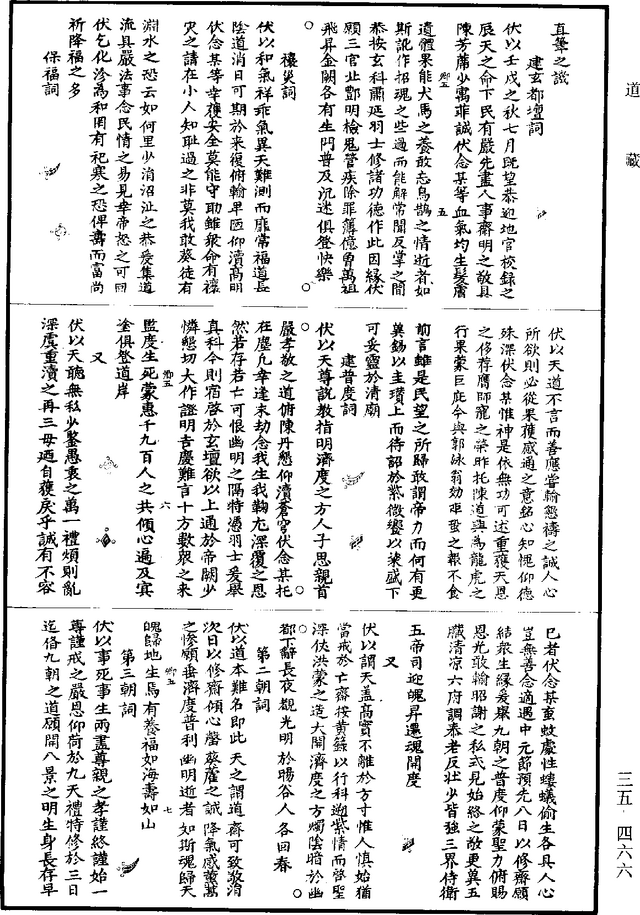 道藏
三五·四六六
直筆之誠
建玄都壇詞
伏以壬戌之秋七月旣望恭迎地官校錄之
辰天之命下民有嚴先盡人事齋明之敬具
陳芳薦少寓菲誠伏念某等血氣均生髮膚
遺體果能犬馬之養敢忘烏鵲之情逝者如
斯訛作招魂之些過而能解常聞反掌之間
恭按玄科肅延羽士修諸功德作此因緣伏
願三官北酆明檢鬼營疾除罪簿億曾萬祖
飛昇金闕各有生門普及沉迷俱登快樂
禳災詞
伏以和氣祥乖氣異天難測而靡常福道長
陰道消日可期於來復俯輸卑悃仰瀆高明
伏念某等幸獲安全莫能守助雖衆命有禳
災之請在小人知耻過之非莫我敢葵徒有
淵水之恐云如何里少消沼沚之恭爰集道
流具嚴法事念民情之易見幸帝怒之可回
伏乞化沴爲和罔有祀寒之恐俾壽而富尚
祈降福之多
保福詞
伏以天道不言而善應嘗輸懇禱之誠人心
所欲則必從果獲感通之意銘心知愧仰德
殊深伏念某惟神是依無功可述重獲天恩
之侈荐膺師寵之榮昨托陳道與爲龍虎之
行果蒙巨庇今與郭詠翁効率發之報不食
前言雖是民望之所歸敢謂帝力而何有更
冀錫以圭瓚上而待詔於紫微饗以粢盛下
可妥靈於清廟
建普度詞
伏以天尊說教指明濟度之方人子思親首
嚴孝敬之道俯陳丹懇仰瀆蒼穹伏念某托
在塵凡幸逢末劫念我生我鞠尤深覆之恩
然若存若亡可恨幽明之隔特憑羽士爰舉
眞科今則宿啓於玄壇欲以上通於帝闕少
憐懇切大作證明吉慶難言十方數衆之來
監度生死蒙惠千九百人之共傾心遍及寅
塗俱登道岸
又
伏以天聽無私少鑒愚衷之萬一禮煩則亂
深虞重瀆之再三毋廼自獲戾乎誠有不容
已者伏念某蚤蚊處性螻蟻偷生各具人心
豈無善念適遇中元節預先八日以修齋願
結衆生緣爰舉九朝之普度仰蒙聖力俯賜
恩光敢輸昭謝之私式見始終之敬更冀五
臟清凉六府調泰老反壯少皆強三界侍衛
五帝司迎魄昇還魂開度
又
伏以謂天蓋高實不離於方寸惟人慎始猶
當戒於亡齋按黃籙以行科遡紫情而啓聖
深伏洪蒙之造大開濟度之方燭陰暗於幽
都下辭長夜觀光明於暘谷人各回春
第二朝詞
伏以道本難名即此天之謂道齋可致敬消
次日以修齋傾心螢葵藿之誠降氣感薰蒿
之慘願垂濟度普利幽明逝者如斯魂歸天
魄歸地生爲有養福如海壽如山
第三朝詞
伏以事死事生兩盡尊親之孝謹終謹始一
專謹戒之嚴恩仰荷於九天禮特修於三日
迄洛九朝之道願開八景之明生身長存早